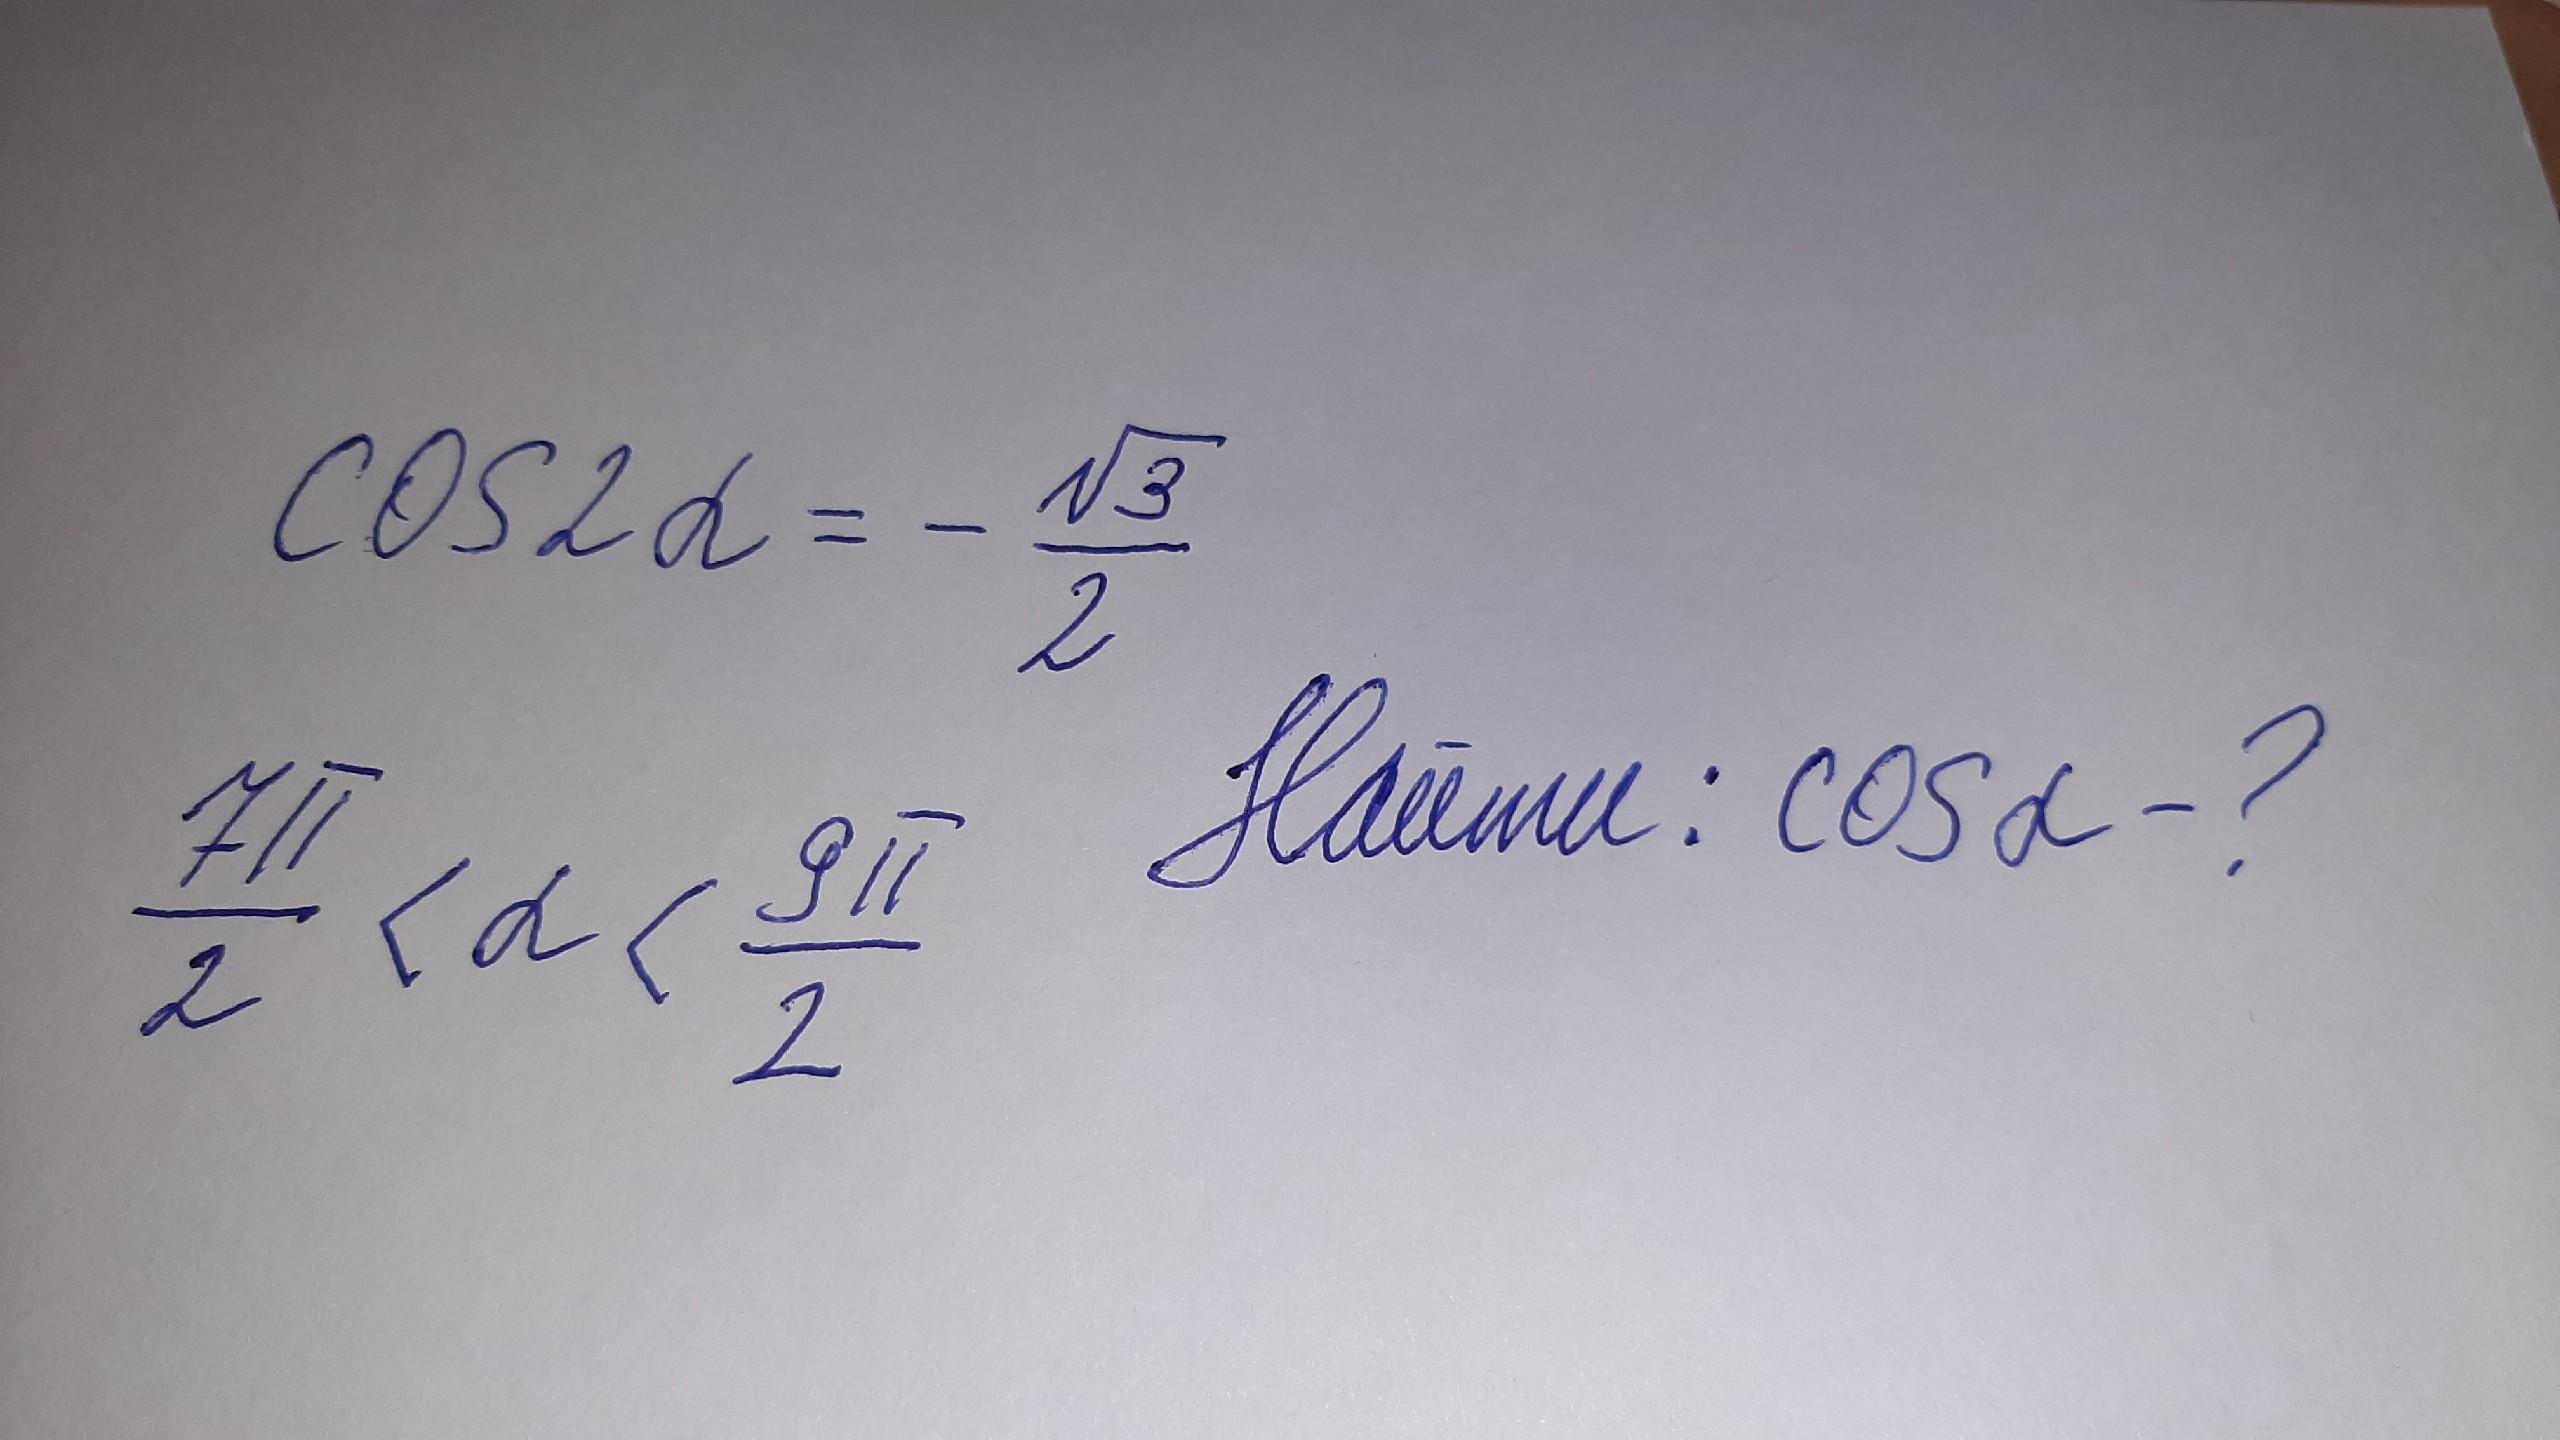 cos2α = - √3/2
7π/2 < α < 9π/2
Найти: cosα - ?